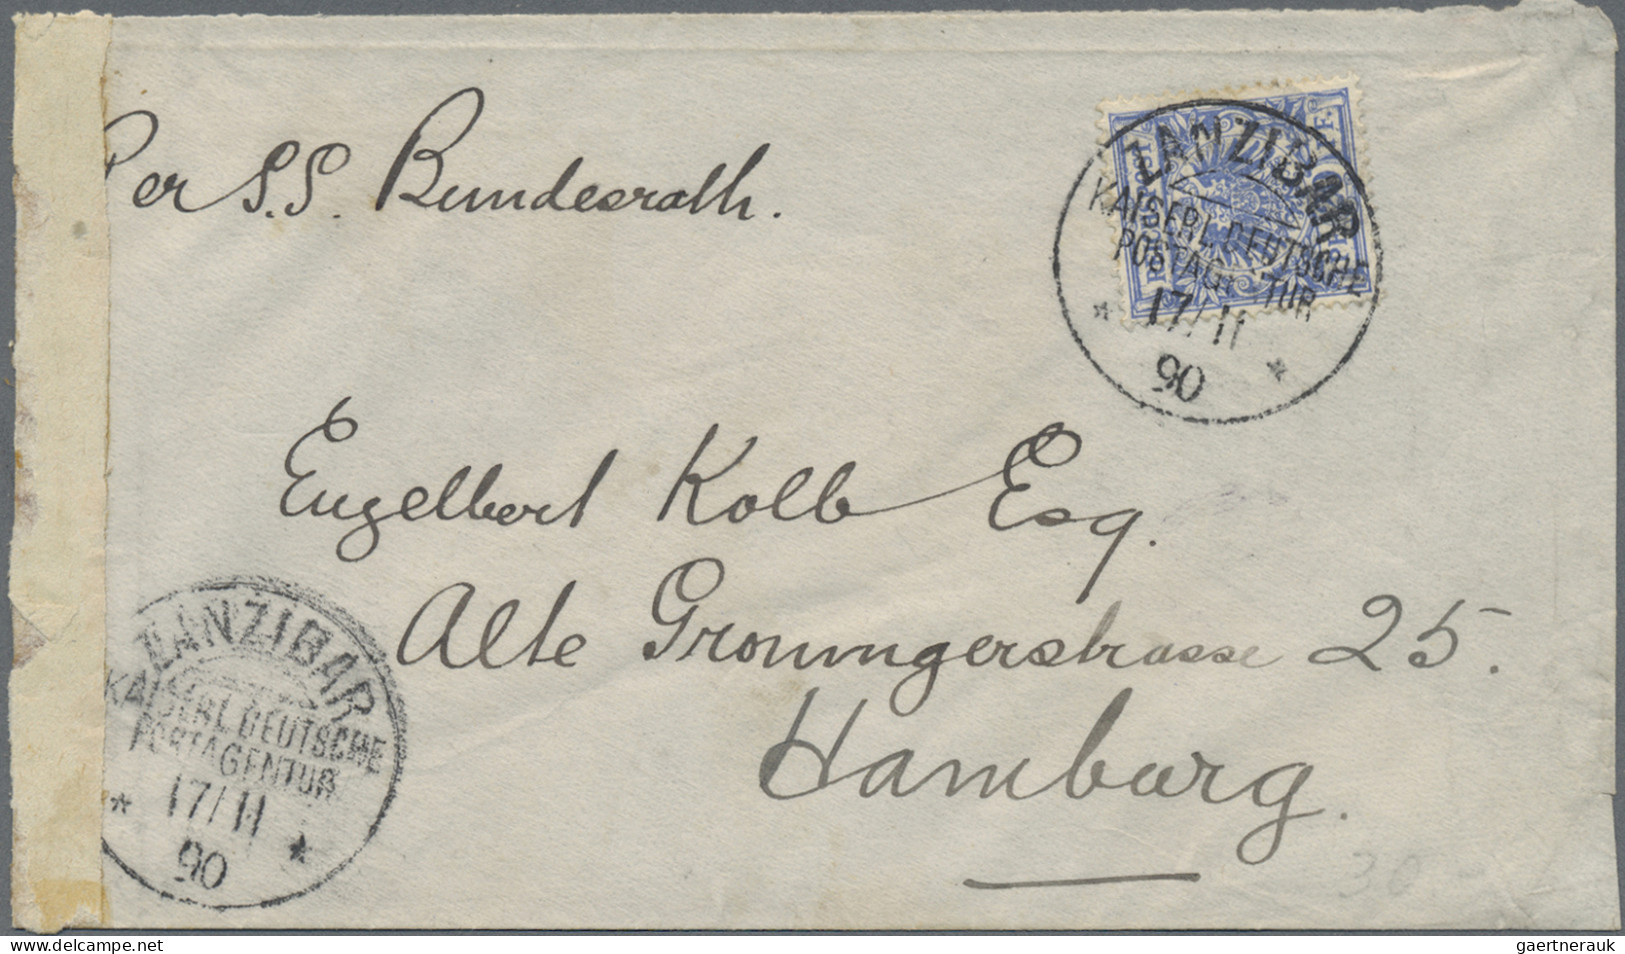 Per S.S. Bundesrath.
ZANZIBAR
KAISERL. DEUTSCHE
POSTAGENTUR
* 17/11 *
90
Engelbert Kolb Esq.
Alte Groningerstrasse 25.
Hamburg.
ZANZIBAR
KAISERL. DEUTSCHE
POSTAGENTUR
* 17/11 *
90
30.-
delcampe.net
gaertnerauk